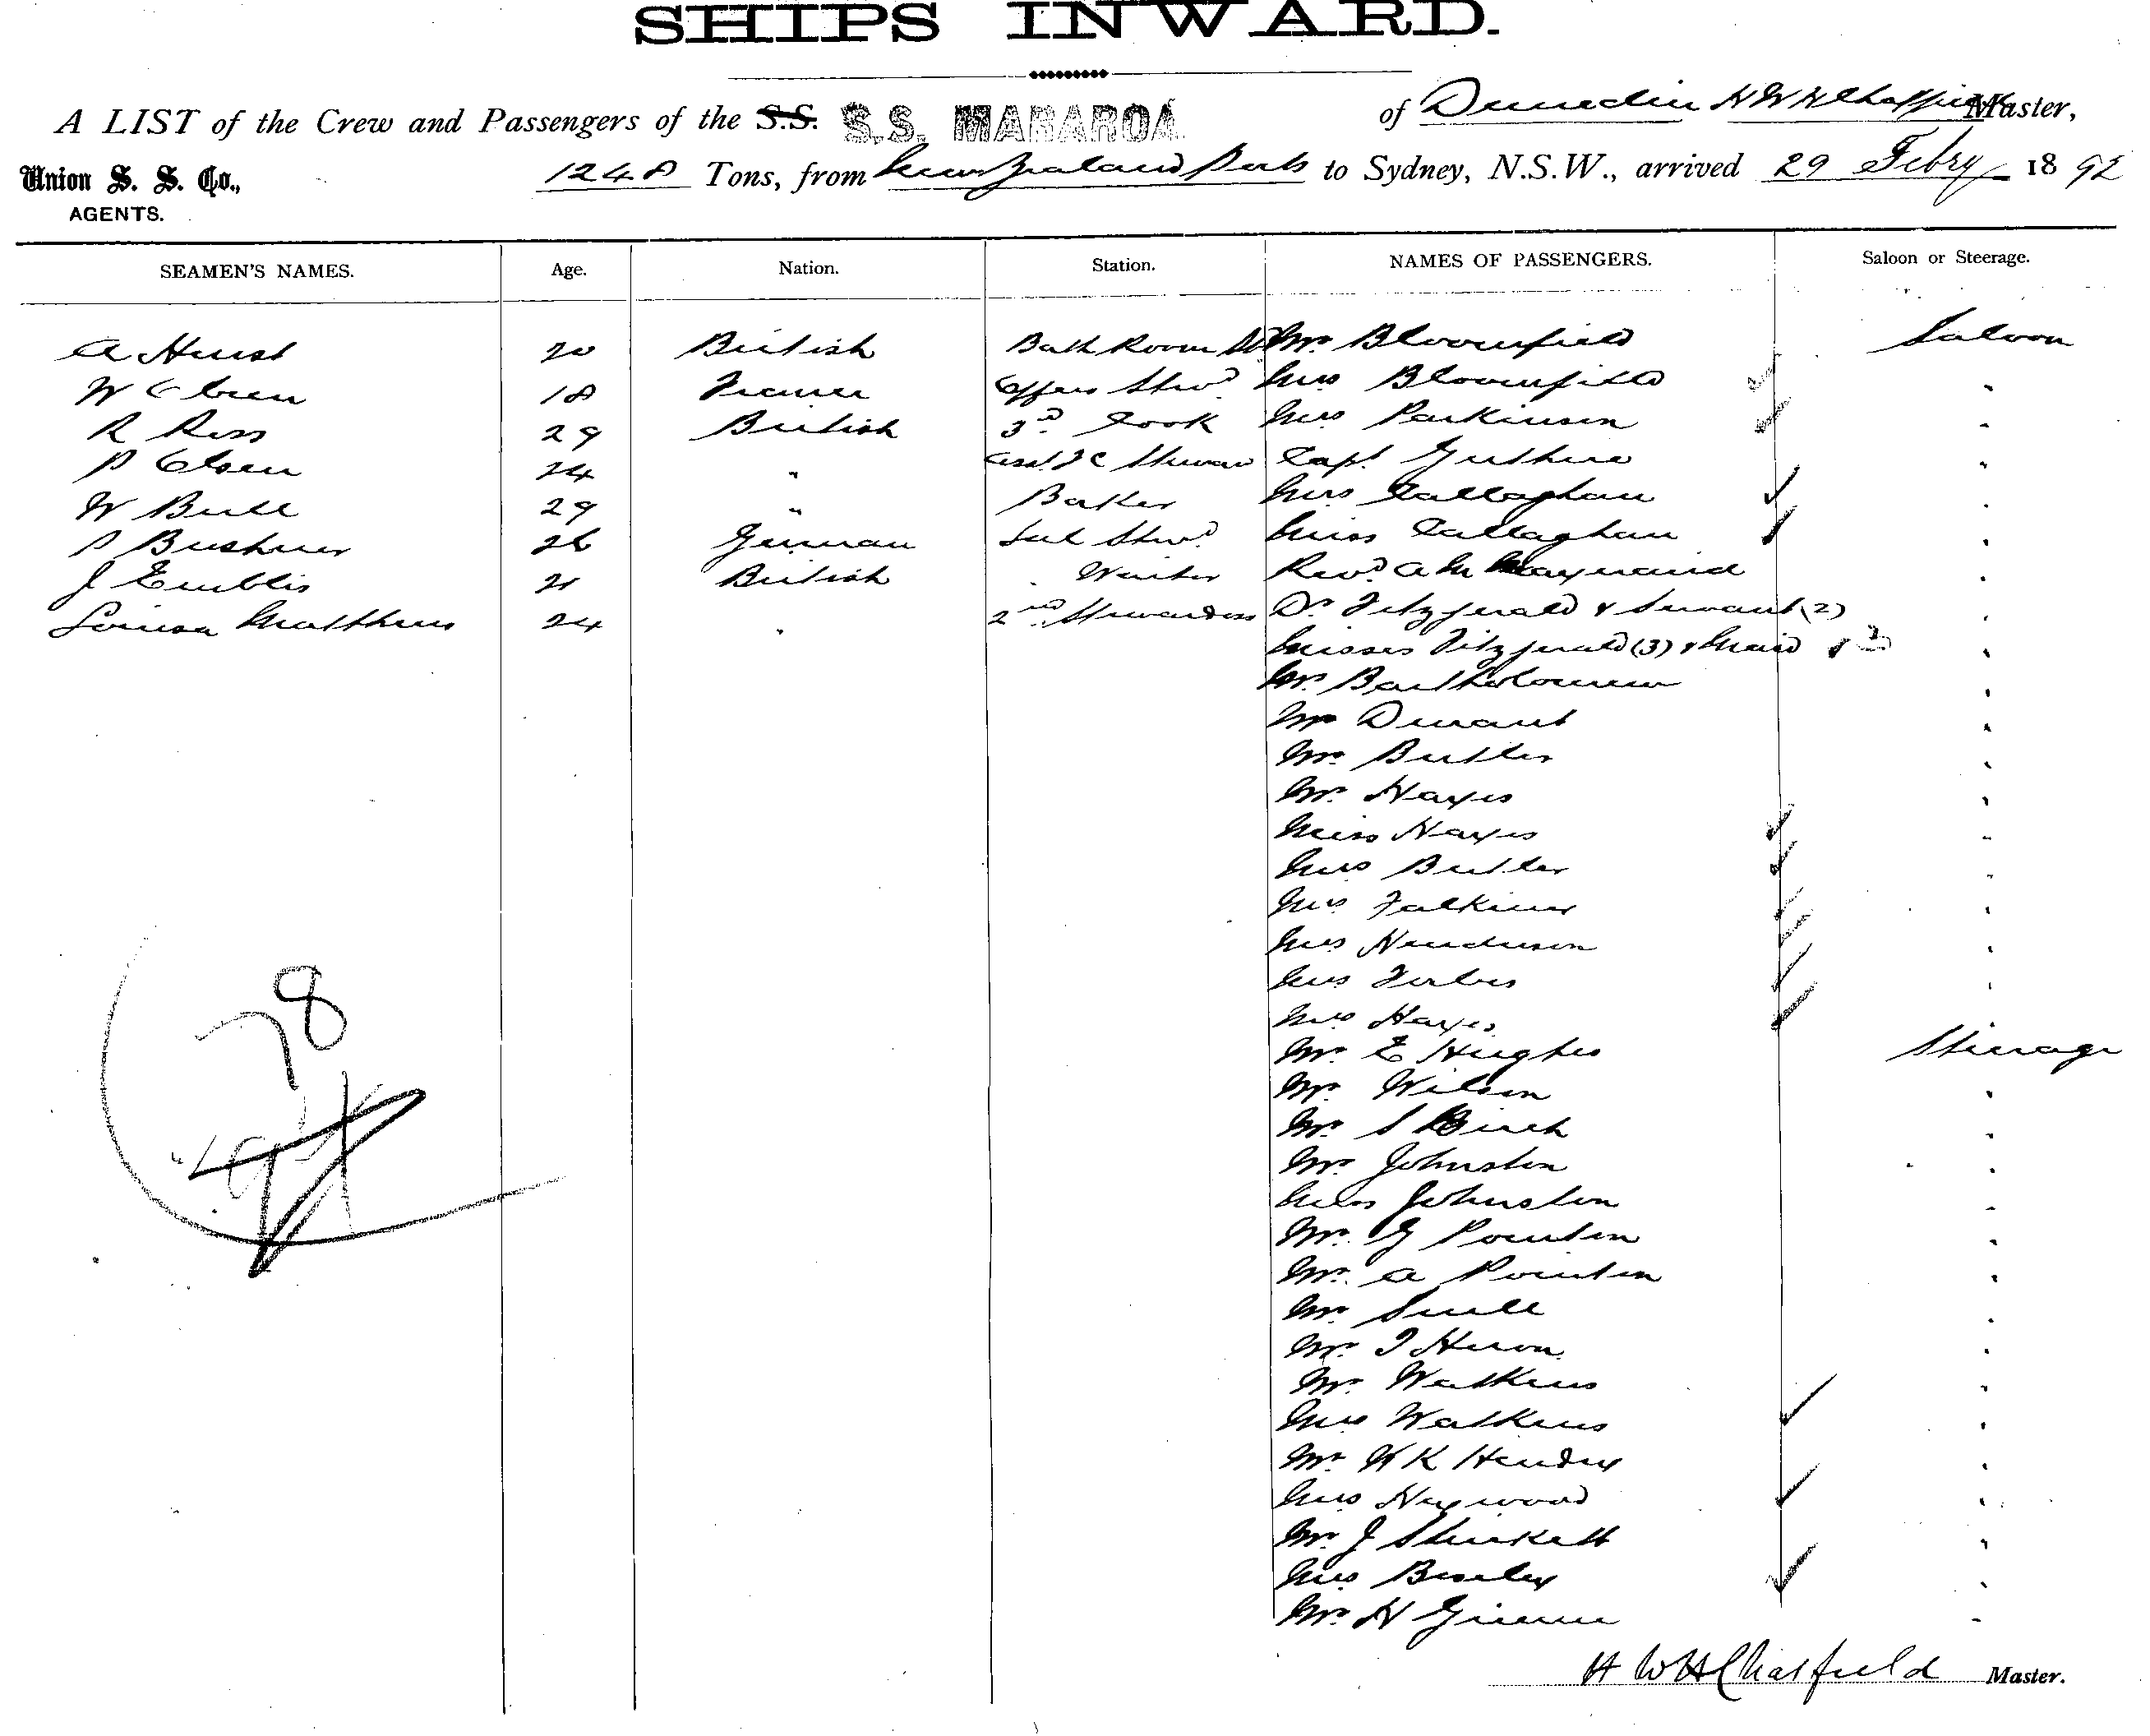 SHIPS INWARD.
A LIST of the Crew and Passengers of the S.S. S.S. MARAROA of Dunedin H W H Chatfield Master,
Union S. S. Co., 1248 Tons, from New Zealand Ports to Sydney, N.S.W., arrived 29 Febry 1892
AGENTS.
SEAMEN'S NAMES. Age. Nation. Station. NAMES OF PASSENGERS. Saloon or Steerage.
A Hurst 20 British Bath Room Mr. Bloomfield Saloon
W 18 France Offers Stwd Mrs Bloomfield "
R Ross 29 British 3rd Cook Mrs Parkinson "
P Olsen 24 " Capt Guthrie "
W Bull 29 " Baker Mrs Callaghan "
26 German Stwd Miss Callaghan "
J 21 British " Waiter Revd A M Maynard "
Louisa Matthews 24 " 2nd Stewardess Dr. Fitzgerald & Servant (2) "
Misses Fitzgerald (3) & Maid "
Mr. Bartholomew "
Mr Durant "
Mr. Butler "
Mr. Hayes "
Miss Hayes "
Mrs Butler "
Mrs Falkiner "
Mrs Henderson "
Mrs Forbes "
Mrs Hayes "
Mr. E Hughes Steerage
Mr. Wilson "
Mr. S Birch "
Mr. Johnston "
Johnston "
Mr. G Pointon "
Mr. A Pointon "
Mr. "
Mr. T Heron "
Mr. Watkins "
Mrs Watkins "
Mr W K Hendry "
Mrs Heywood "
Mr. J "
Mrs Beesley "
Mr. H Greene "
78
H W H Chatfield Master.